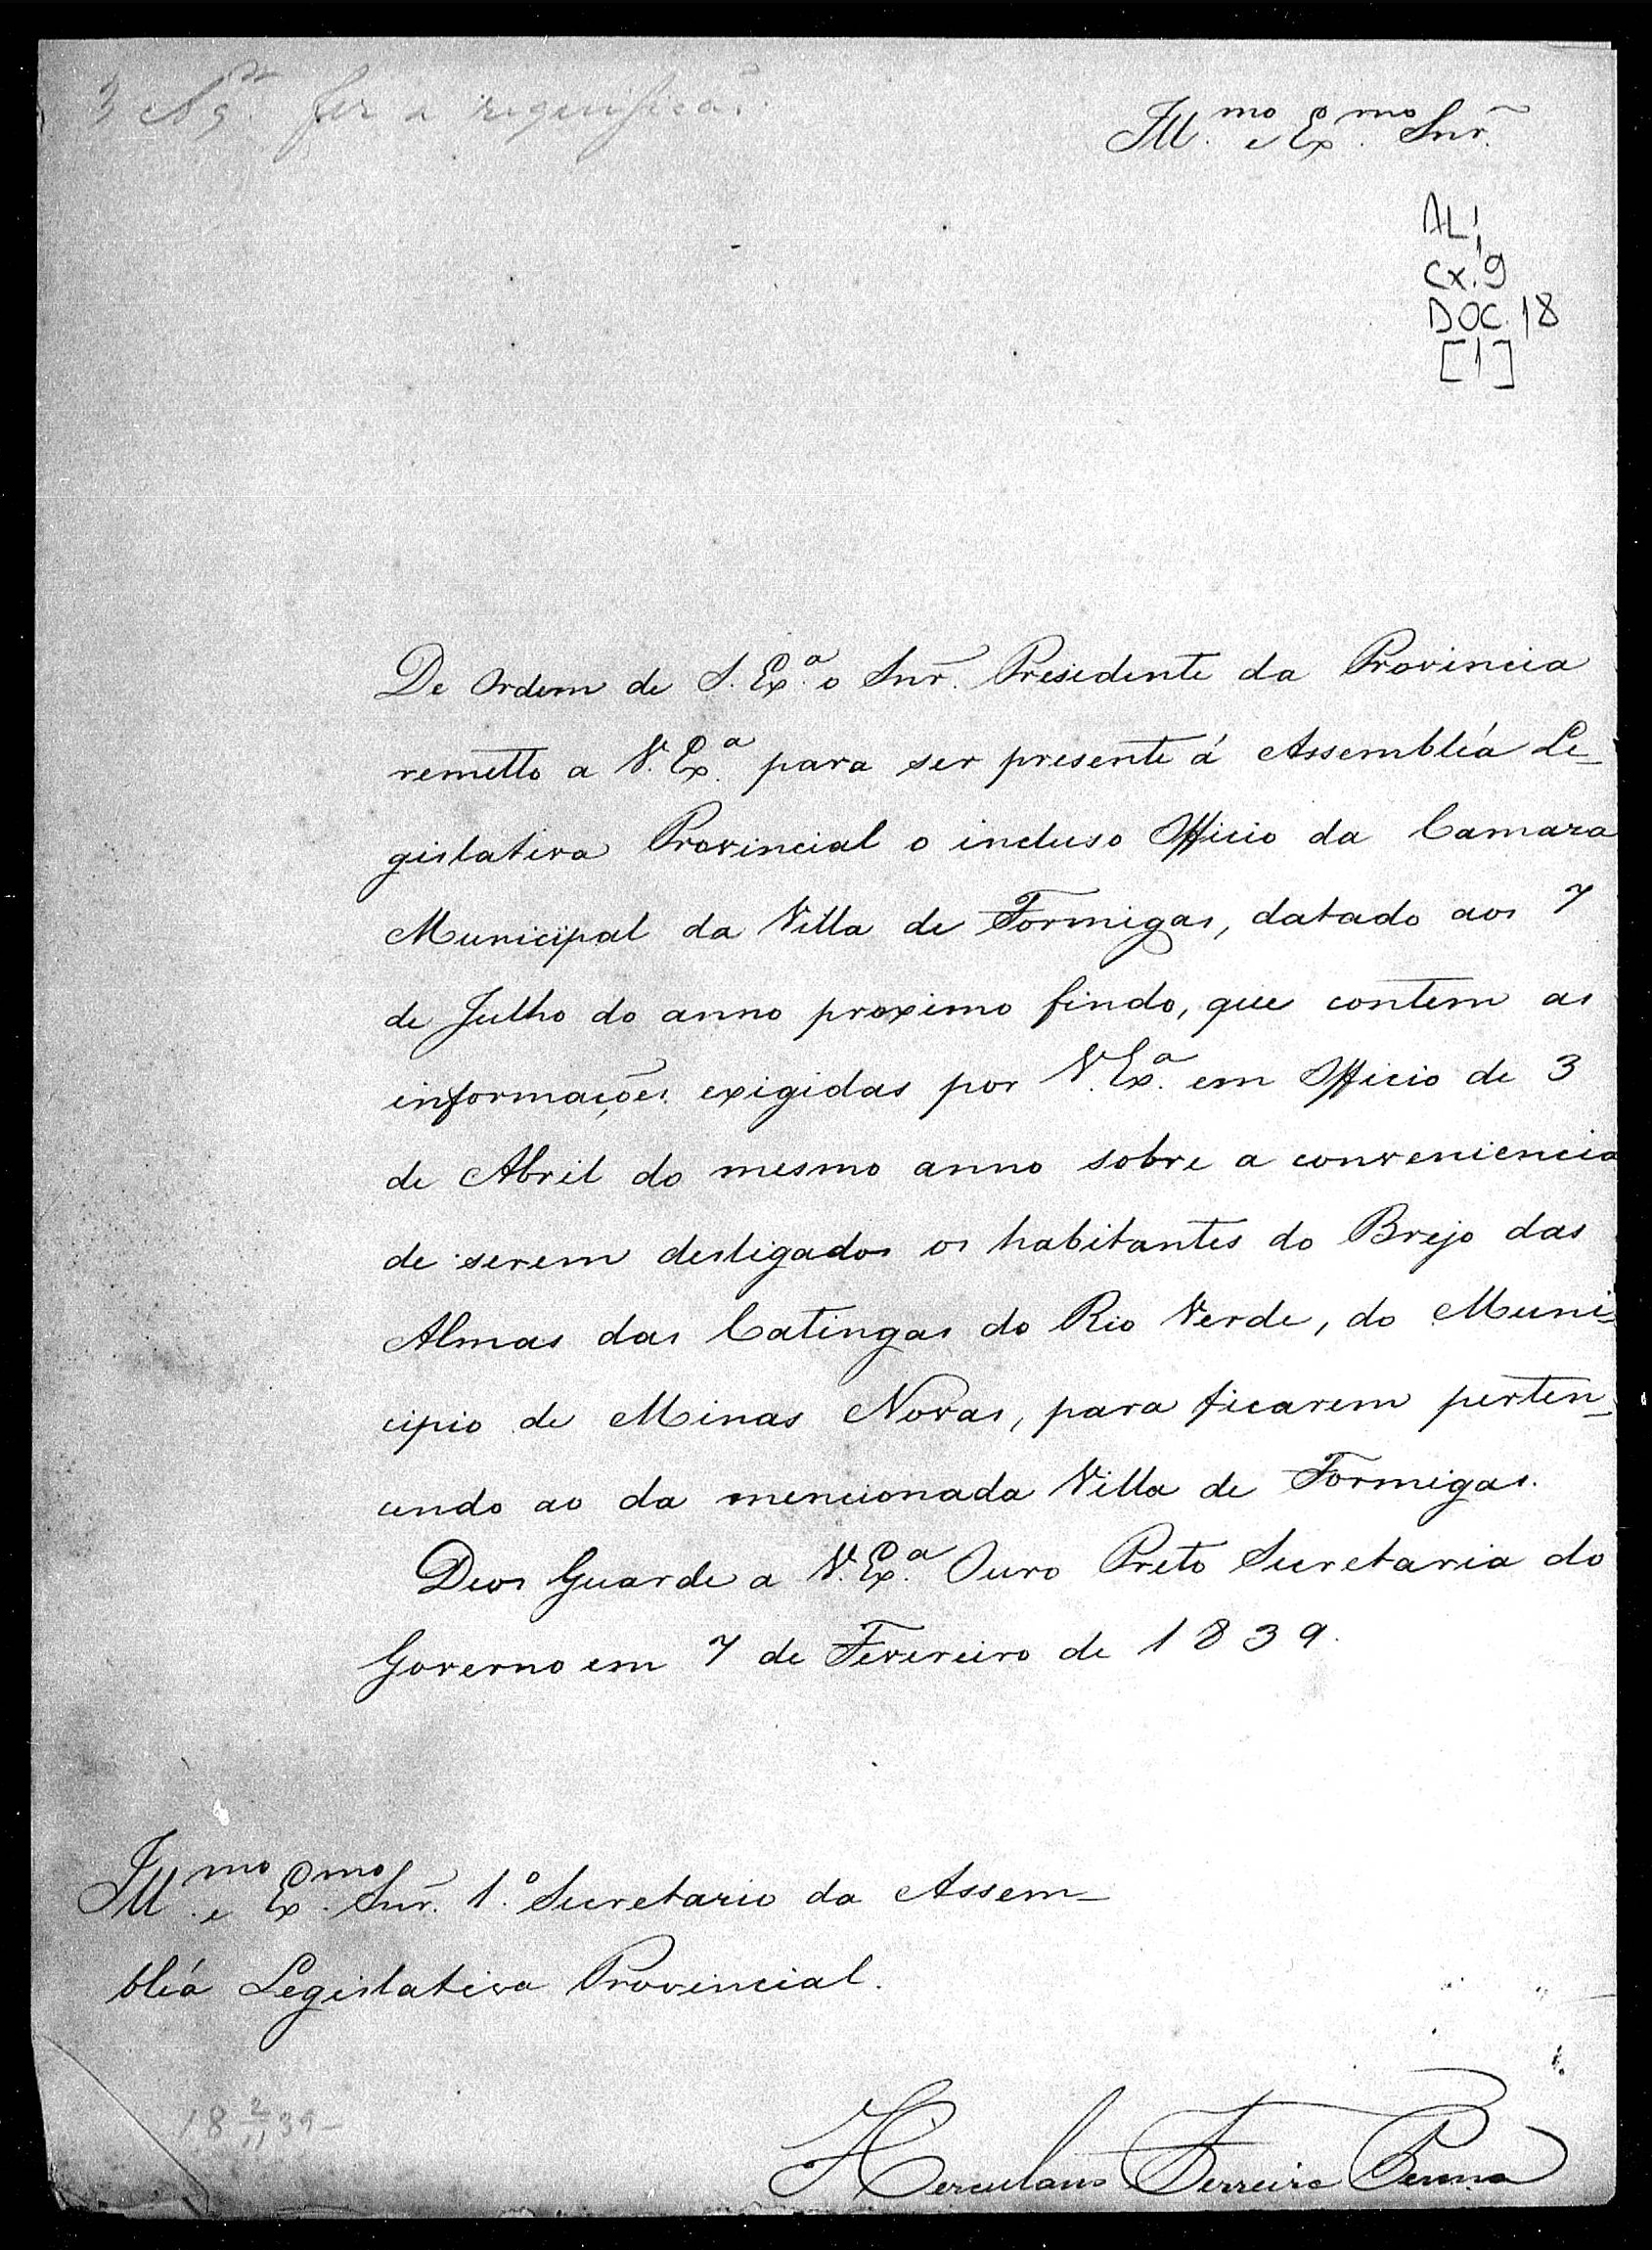 Ill.mo e Ex.mo Snr.
AL,
Cx. 9
DOC. 18
[1]
De Ordem de S. Ex.a o Snr. Presidente da Provincia
remetto a V. Ex.a para ser presente á Assembléa Le-
gislativa Provincial o incluso Officio da Camara
Municipal da Villa de Formigas, datado aos 7
de Julho do anno proximo findo, que contem as
informações exigidas por V. Ex.a em Officio de 3
de Abril do mesmo anno sobre a conveniencia
de serem desligados os habitantes do Brejo das
Almas das Catingas do Rio Verde, do Muni-
cipio de Minas Novas, para ficarem perten-
cendo ao da mencionada Villa de Formigas.
Deos Guarde a V. Ex.a Ouro Preto Secretaria do
Governo em 7 de Fevereiro de 1839.
Ill.mo e Ex.mo Snr. 1.o Secretario da Assem-
bléa Legislativa Provincial.
18 2/11 39-
Herculano Ferreira Penna